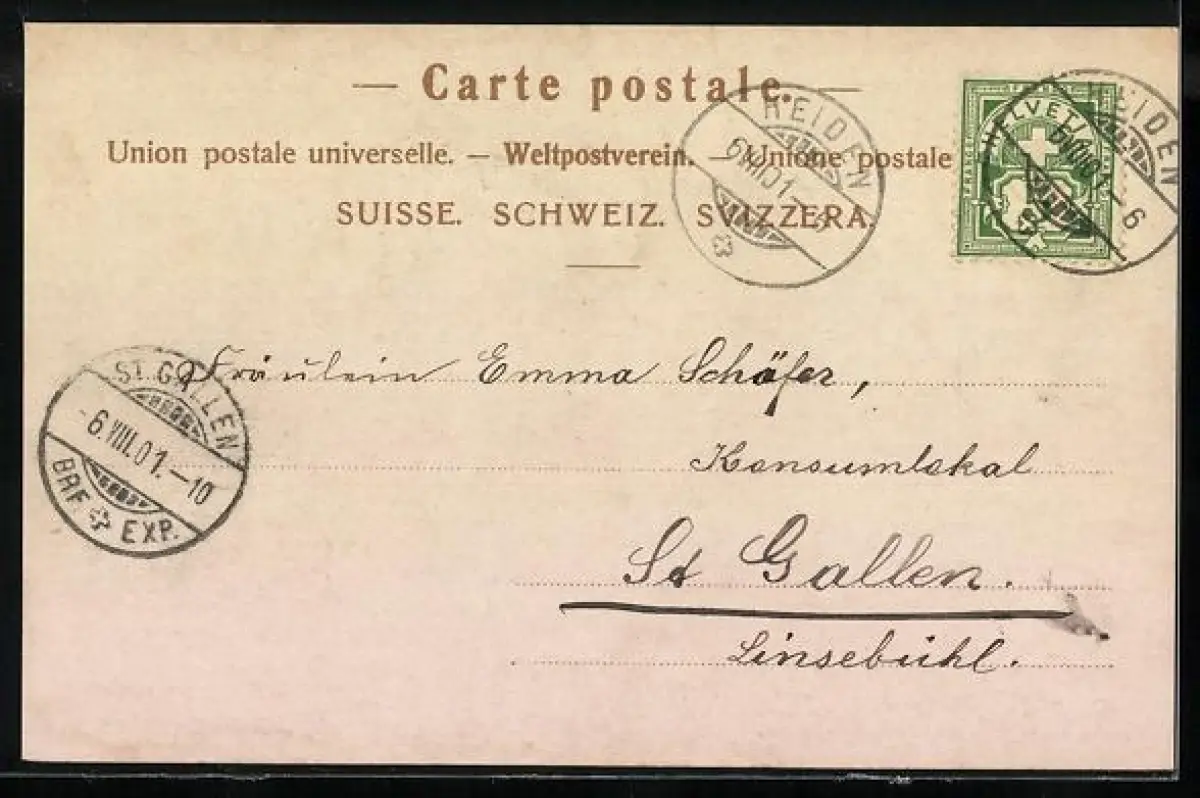 — Carte postale. —
Union postale universelle. — Weltpostverein. — Unione postale
SUISSE. SCHWEIZ. SVIZZERA.
HEIDEN
6. VIII. 01. – 6
HELVETIA
HEIDEN
6. VIII. 01. – 6
ST. GALLEN
- 6. VIII. 01. – 10
BRF. EXP.
Fräulein Emma Schäfer,
Konsumlokal
St Gallen.
Linsebühl.